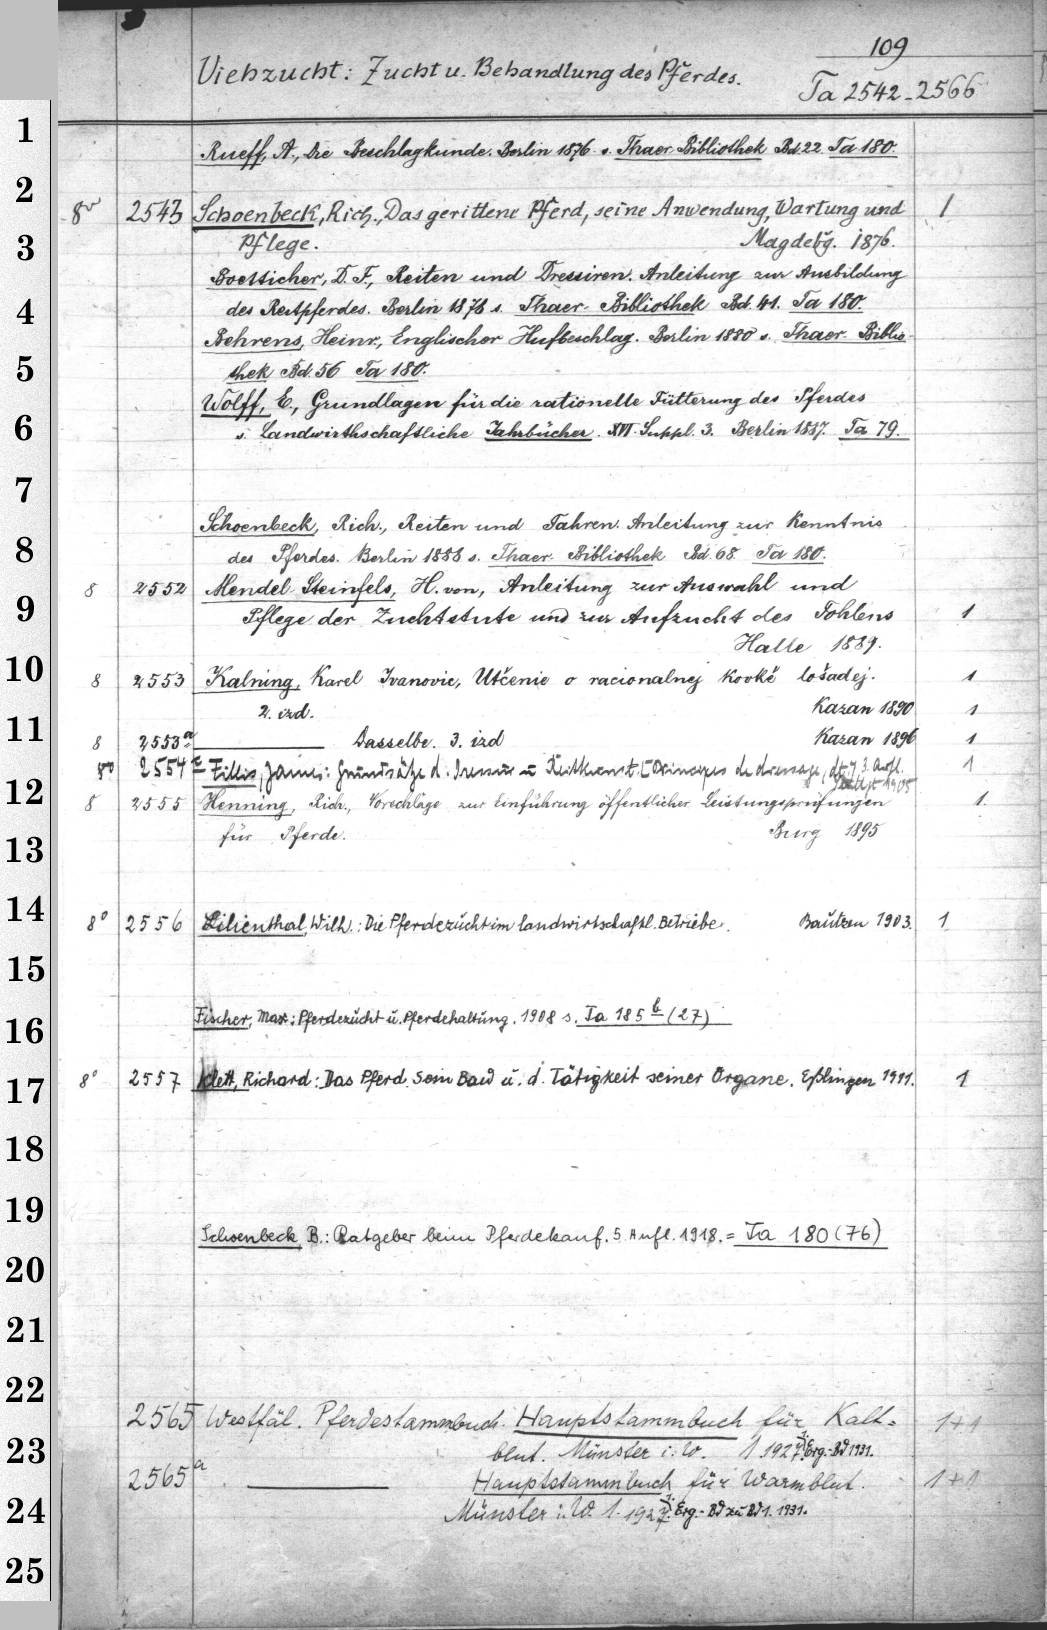 109
Viehzucht: Zucht u. Behandlung des Pferdes.
Ta 2542-2566
1
Rueff, A., Die Beschlagkunde. Berlin 1876 s. Thaer Bibliothek Bd 22 Ta 180.
2
8° 2543 Schoenbeck, Rich., Das gerittene Pferd, seine Anwendung, Wartung und 1
3
Pflege. Magdebg. 1876.
Boetticher, D. F., Reiten und Dressiren. Anleitung zur Ausbildung
4
des Reitpferdes. Berlin 1878 s. Thaer-Bibliothek Bd. 41. Ta 180.
Behrens, Heinr., Englischer Hufbeschlag. Berlin 1880 s. Thaer-Biblio-
5
thek Bd. 56 Ta 180.
Wolff, E., Grundlagen für die rationelle Fütterung des Pferdes
6
s. Landwirthschaftliche Jahrbücher. XVI. Suppl. 3. Berlin 1887. Ta 79.
7
Schoenbeck, Rich., Reiten und Fahren. Anleitung zur Kenntnis
8
des Pferdes. Berlin 1888 s. Thaer-Bibliothek Bd. 68 Ta 180.
8 2552 Mendel Steinfels, H. von, Anleitung zur Auswahl und
9
Pflege der Zuchtstute und zur Aufzucht des Fohlens 1
Halle 1889.
10
8 2553 Kalning, Karel Ivanovic, Učenie o racionalnej kovkě lošadej. 1
2. izd. Kazan 1890 1
11
8 2553a Dasselbe. 3. izd Kazan 1896 1
8° 2554 Fillis, James: Grundsätze d. Dressur u Reitkunst. [Principes de dressage, dt.] 3. Aufl. 1
1905
12
8 2555 Henning, Rich., Vorschläge zur Einführung öffentlicher Leistungsprüfungen 1.
13
für Pferde. Burg 1895
14
8° 2556 Lilienthal, Wilh.: Die Pferdezucht im landwirtschaftl. Betriebe. Bautzen 1903. 1
15
16
Fischer, Max: Pferdezucht u. Pferdehaltung. 1908 s. Ta 185 b (27)
17
8° 2557 Klett, Richard: Das Pferd. Sein Bau u. d. Tätigkeit seiner Organe. Eßlingen 1911. 1
18
19
Schoenbeck, B.: Ratgeber beim Pferdekauf. 5. Aufl. 1918. = Ta 180 (76)
20
21
22
2565 Westfäl. Pferdestammbuch. Hauptstammbuch für Kalt= 1+1
23
blut. Münster i. W. 1 1927. Erg.-Bd 1931.
2565a Hauptstammbuch für Warmblut. 1+1
24
Münster i. W. 1. 1927. Erg.-Bd zu Bd 1. 1931.
25